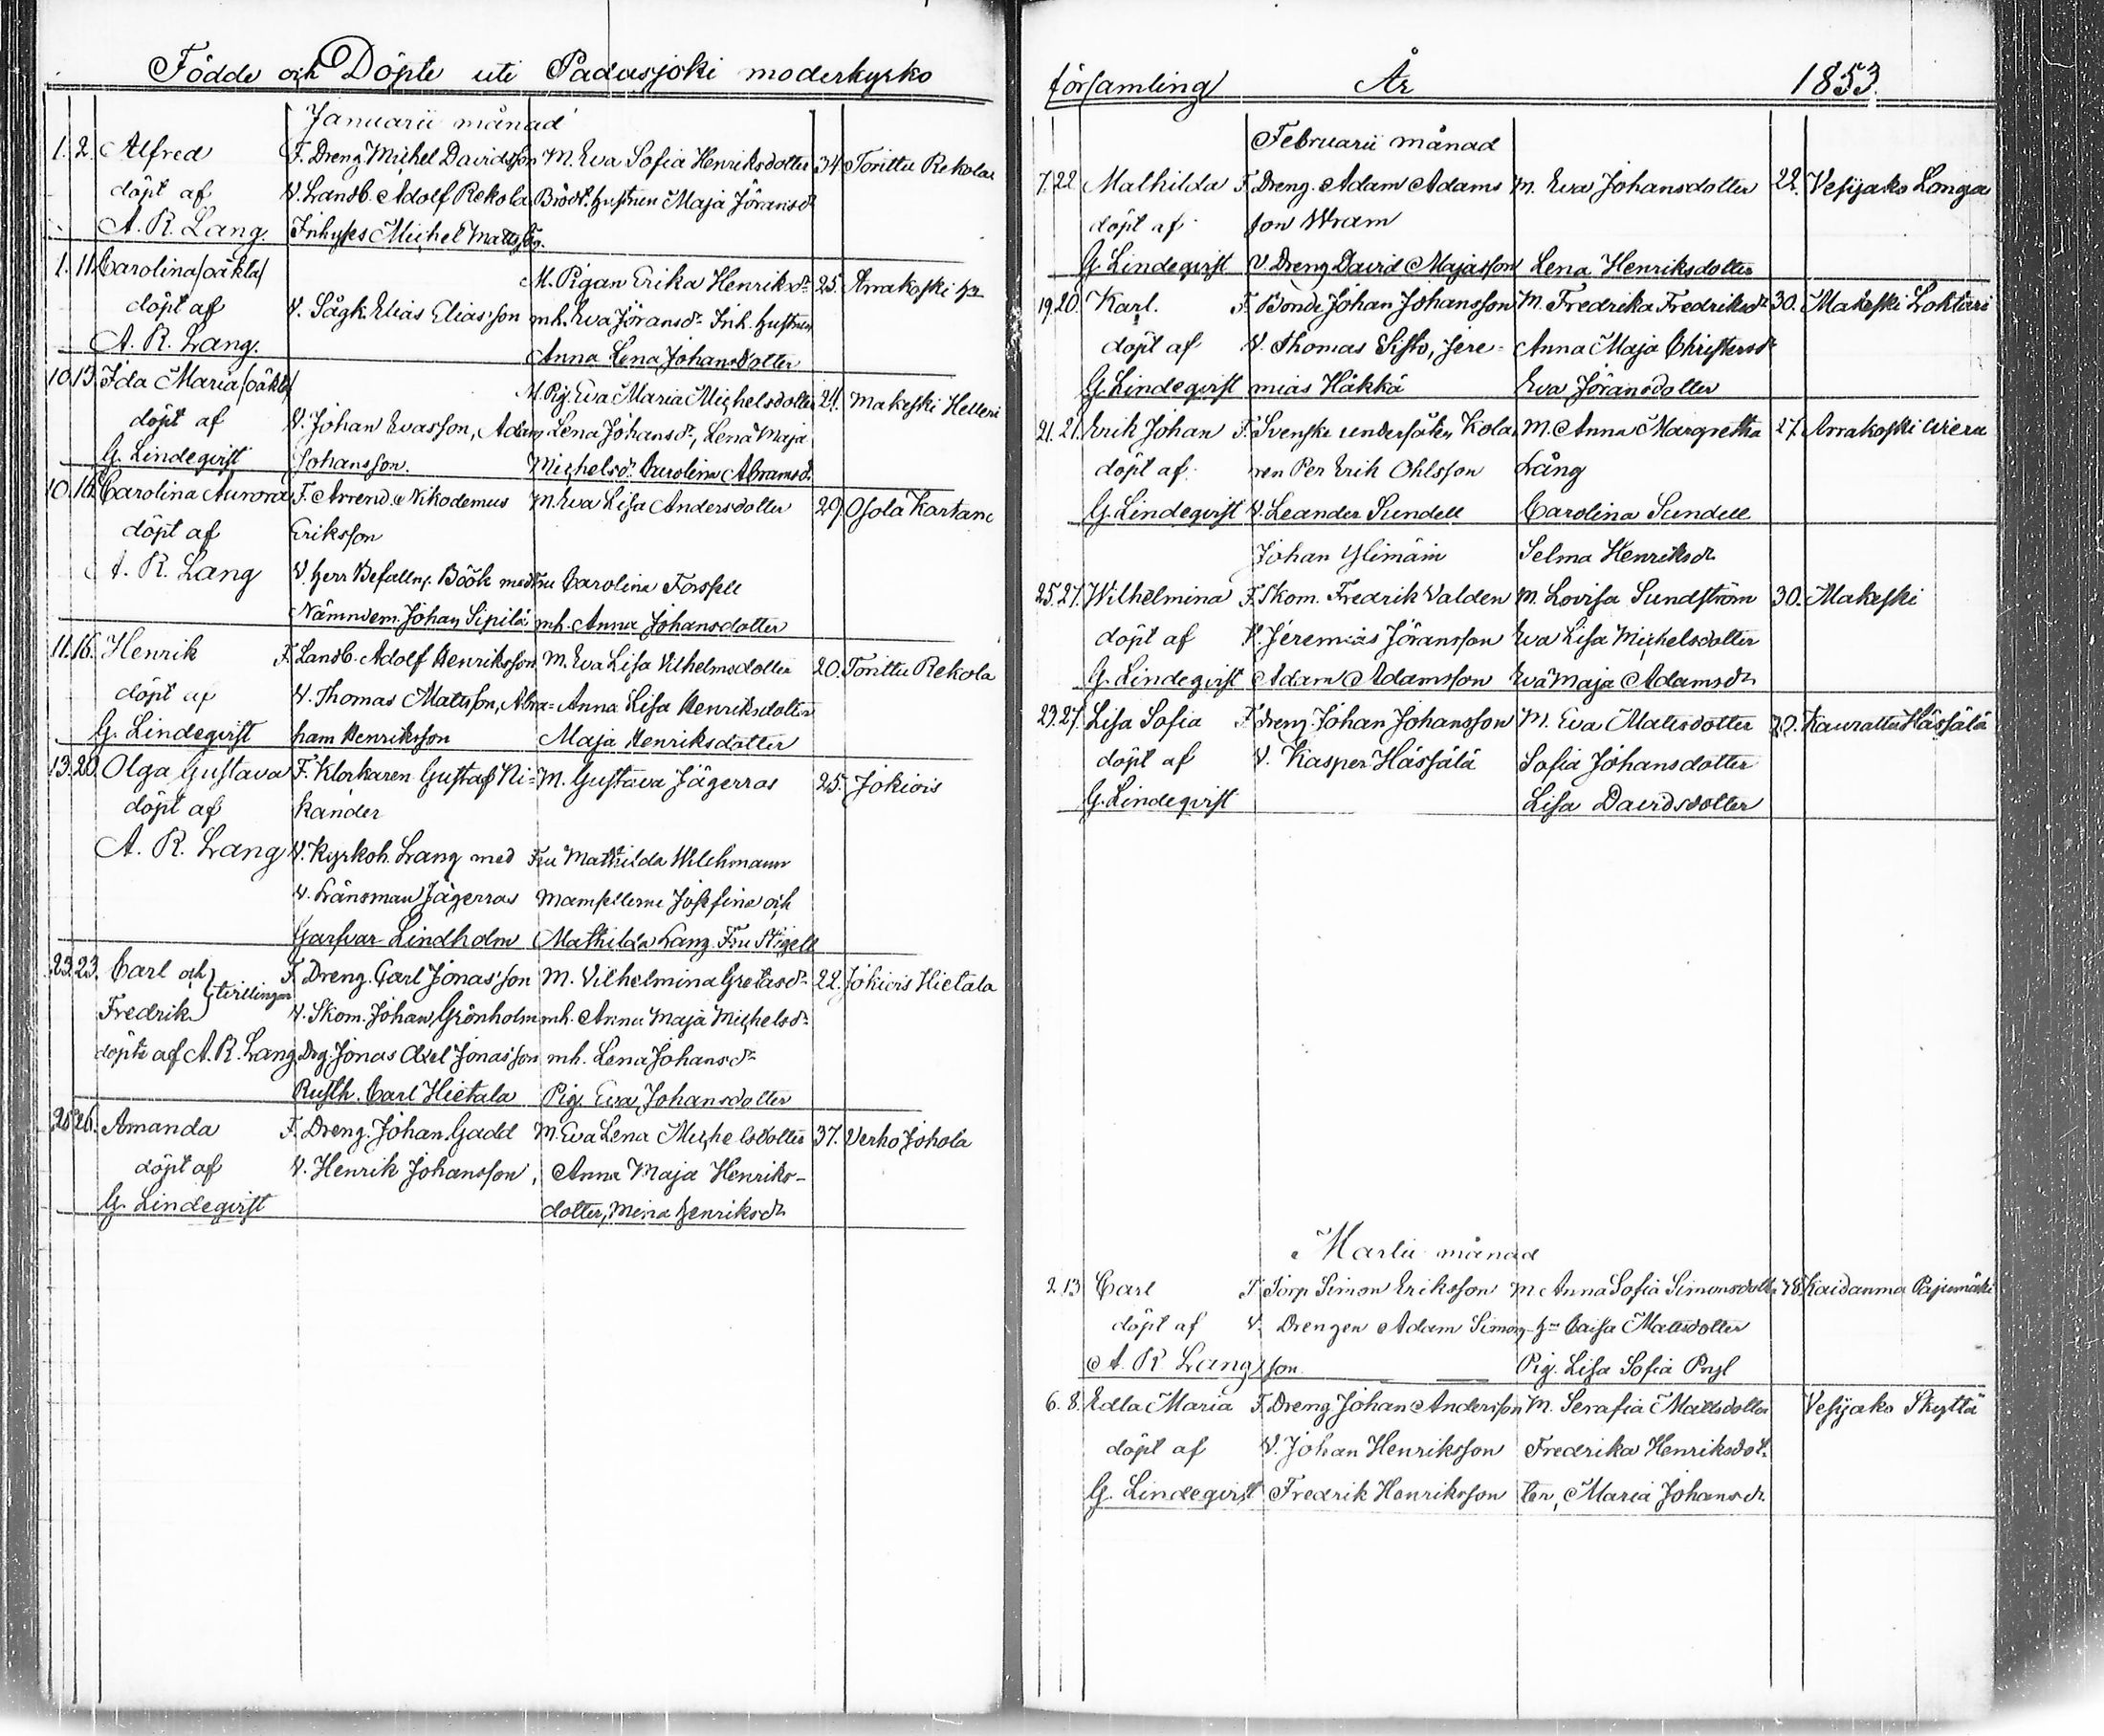 Födde och Döpte uti Padasjoki moderkyrko
Januarii månad
1. 2. Alfred F. Dreng Michel Davidsson M. Eva Sofia Henriksdotter 34. Torittu Rekola
döpt af V. Landb. Adolf Rekola Brodr. hustrun Maja Jöransdr
A. R. Lang. Inhyses Michel Mattsson.
1. 11. Carolina /oäkta/ M. Pigan Erika Henriksdr 25. Arrakoski
döpt af V. Sågk. Elias Eliasson mh. Eva Jöransdr Inh. hustrun
A. R. Lang. Anna Lena Johansdotter
10. 13. Ida Maria /oäkta/ M. Pig. Eva Maria Michelsdotter 24. Makeski Helleri
döpt af V. Johan Evasson, Adam Lena Johansdr, Lena Maja
G. Lindeqvist Johansson. Michelsdr Carolina Abramsdr
10. 16. Carolina Aurora F. Arrend. Nikodemus M. Eva Lisa Andersdotter 29. Osola Kartano
döpt af Eriksson
A. R. Lang V. Herr Befallnj. Böök med Fru Carolina Forssell
Nämndem. Johan Sipilä mh. Anna Johansdotter
11. 16. Henrik F. Landb. Adolf Henriksson M. Eva Lisa Vilhelmsdotter 20. Torittu Rekola
döpt af V. Thomas Matsson, Abra- Anna Lisa Henriksdotter
G. Lindeqvist ham Henriksson Maja Henriksdotter
13. 20. Olga Gustava F. Klockaren Gustaf Ni- M. Gustava Jägerros 25. Jokiois
döpt af kander
A. R. Lang V. Kyrkoh. Lang med Fru Mathilda Wilchmann
V. Länsman Jägerros Mamsellerne Josefina och
Garfvar Lindholm Mathilda Lang Fru Stigell
23. 23. Carl och F. Dreng. Carl Jonasson M. Vilhelmina Gretasdr 22. Jokiois Hietala
Fredrik tvillingar V. Skom. Johan Grönholm mh. Anna Maja Michelsdr
döpte af A. R. Lang Drg. Jonas Axel Jonasson mh. Lena Johansdr
Rusth. Carl Hietala Pig. Eva Johansdotter
25. 26. Amanda F. Dreng. Johan Gadd M. Eva Lena Michelsdotter 37. Verho Johola
döpt af V. Henrik Johansson, Anna Maja Henriks-
G. Lindeqvist dotter, Mina Henriksdr
församling År 1853.
Februarii månad
7. 22. Mathilda F. Dreng. Adam Adams M. Eva Johansdotter 22. Vesijako Longa
döpt af son Wram
G. Lindeqvist V. Dreng David Majasson Lena Henriksdotter
19. 20. Karl. F. Bonde Johan Johansson M. Fredrika Fredriksdr 30. Makeski Lokkeri
döpt af V. Thomas Sisto, Jere- Anna Maja Christersdr
G. Lindeqvist mias Häkkä Eva Jöransdotter
21. 21. Erik Johan F. Svenske undersåten Kola M. Anna Margretha 27. Arrakoski Wiera
döpt af ren Per Erik Ohlsson Lång
G. Lindeqvist V. Leander Sundell Carolina Sundell
Johan Ylimäin Selma Henriksdr
25. 27. Wilhelmina F. Skom. Fredrik Valden M. Lovisa Sundström 30. Makeski
döpt af V. Jeremias Jöransson Eva Lisa Michelsdotter
G. Lindeqvist Adam Adamsson Eva Maja Adamsdr
23. 27. Lisa Sofia F. dreng. Johan Johansson M. Eva Mattsdotter Kauratti Hässälä
döpt af V. Kasper Hässälä Sofia Johansdotter
G. Lindeqvist Lisa Davidsdotter
Martii månad
2 13 Carl F. Torp Simon Eriksson M Anna Sofia Simonsdotter Kaidanma Pajumäki
döpt af V. Drengen Adam Simons hu Caisa Mattsdotter
A. R. Lang son Pig. Lisa Sofia
6. 8. Edla Maria F. Dreng Johan Andersson M. Serafia Mattsdotter Vesijako Skyttä
döpt af V. Johan Henriksson Fredrika Henriksdot-
G. Lindeqvist Fredrik Henriksson ter, Maria Johansdr.